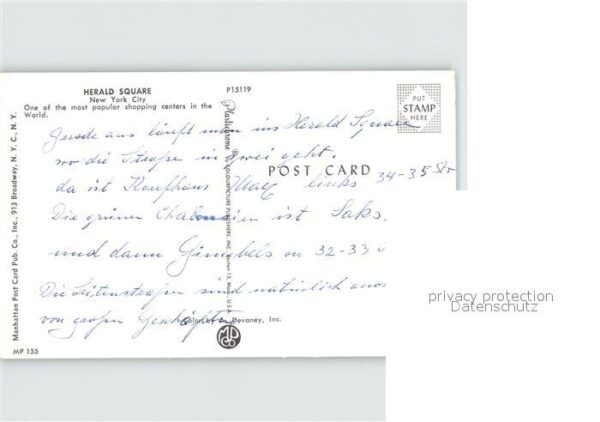 HERALD SQUARE
New York City
One of the most popular shopping centers in the
World.
P15119
PUT
STAMP
HERE
Gerade aus läuft man ins Herald Square
wo die Straße in zwei geht.
POST CARD
da ist Kaufhaus links 34-35 Str
Die grünen ist Saks.
und dann Gimbels on 32-33
Die Seitenstraßen sind natürlich
von großen Geschäften
Color by Devaney, Inc.
MP 155
Manhattan Post Card Pub. Co., Inc., 913 Broadway, N. Y. C., N. Y.
privacy protection
Datenschutz